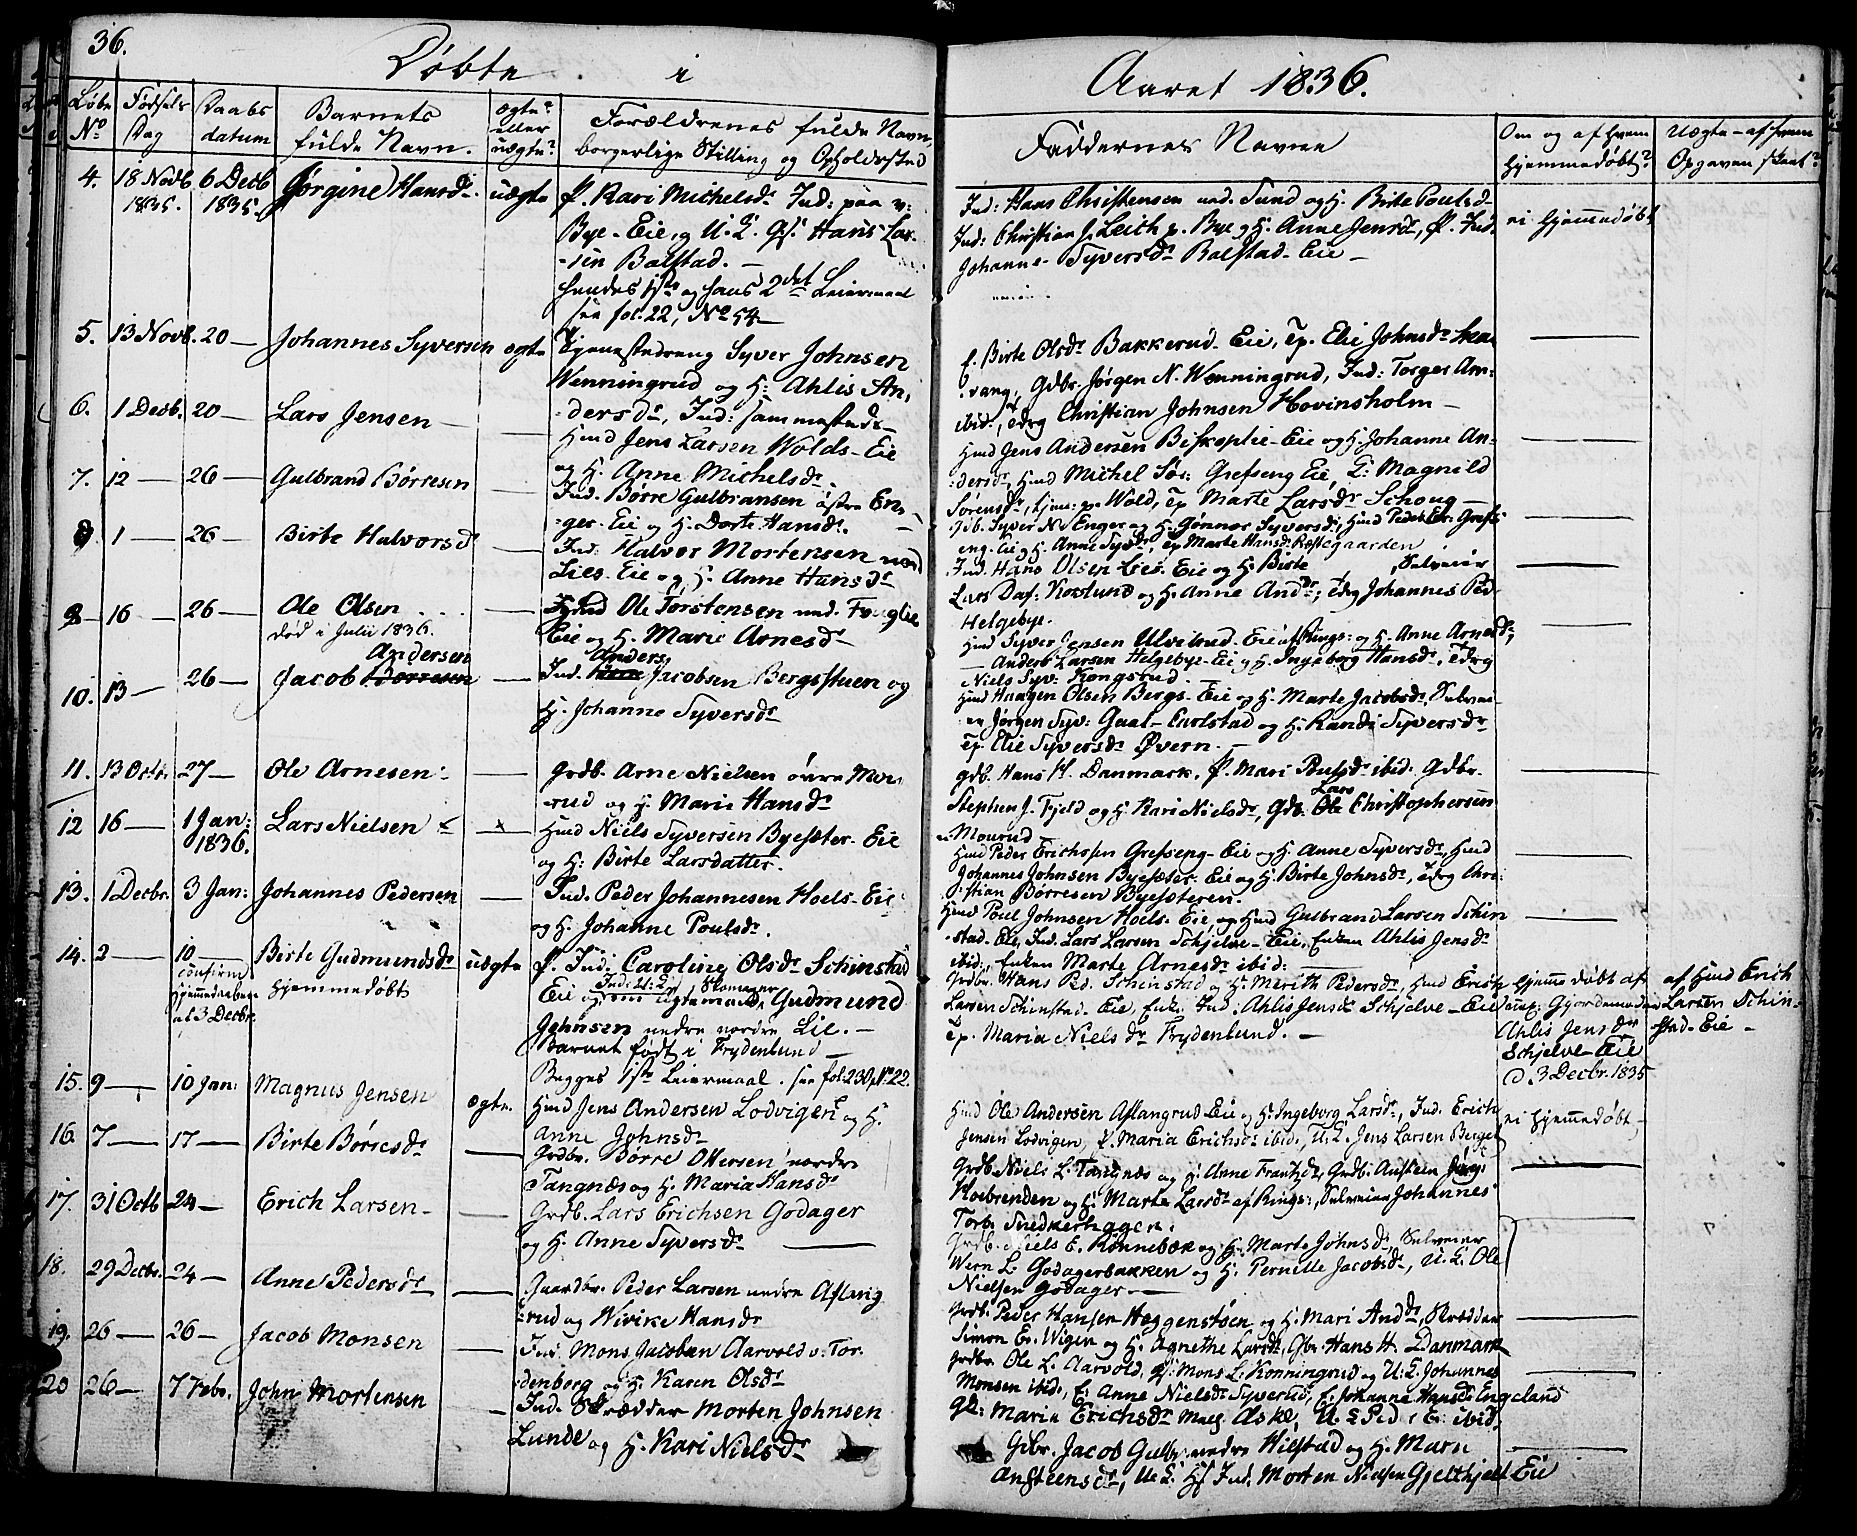 36.
Døbte i
Aaret 1836.
Løbe No
Fødsels Dag
Daabs datum
Barnets fulde Navn.
ægte? eller uægte?
Forældrenes fulde Navn, borgerlige Stilling og Opholdssted
Faddernes Navne
Om og af hvem hjemmedøbt?
Uægte - af hvem Opgaven skeet?
4. 18 Novb. 1835. 6 Decb 1835. Jørgine Hansdr. uægte
P. Kari Michelsdr. Ind: paa v:
Bye-Eie, og U. K. Gf. Hans Lar-
-sen Balstad. -
hendes 1ste og hans 2det Leiermaal
see fol. 22, No 54 -
Ind: Hans Christensen ned. Sund og H. Birte Poulsd.
Ind: Christian J. Leich p. Bye og H. Anne Jensdr, P. Ind.
Johanne Syversdr Balstad-Eie -
ei hjemmedøbt
5. 13 Novb. 20 - Johannes Syversen ægte
Tjenestedreng Syver Johnsen
Wenningrud og H: Ahlis An-
-dersdr, Ind: sammesteds -
E. Birte Olsdr Bakkerud-Eie, Tp. Elie Johnsdr Skar
vang, Gdbr. Jørgen N. Wenningrud, Ind: Torger Am:
ibid:, Tdrg Christian Johnsen Hovinsholm -
6. 1 Decb. 20 - Lars Jensen -
Hmd Jens Larsen Wolds-Eie
og H. Anne Michelsdr.
Hmd Jens Andersen Biskoplie-Eie og H. Johanne An-
-dersdr, Hmd Michel Sør: Grefseng Eie, E: Magnild
Sørensdr, tjen: p. Wold, Tp Marte Larsdr Schoug -
7. 12 - 26 - Gulbrand Børresen -
Ind. Børre Gulbransen østre En-
-ger-Eie og H. Dorte Hansdr.
Gdb. Syver N. Enger og H. Gønnor Syversdr, Hmd Peder Er: Grefs-
eng-Eie, H. Anne Syvdr, Tp Marte Hansdr Præstegaarden
8. 1 - 26 - Birte Halvorsd -
Ind: Halvor Mortensen ned
Lies-Eie og H. Anne Hansdr
Ind. Hans Olsen Lies-Eie og H. Birte , Selveier
Lars Daf: Koslund og H. Anne Anddr, Tdrg Johannes Ped.
Helgebye.
9 - 16 - 26 - Ole Olsen
død i Julii 1836.
Hmd Ole Torstensen ned. Fouglie
Eie og H. Marie Arnesdr -
Hmd Syver Jensen Ulvilrud-Eie af Rings: og H. Anne Arnesdr,
- Anders Larsen Helgebye-Eie og H. Ingeborg Hansdr, Tdrg
Niels Syv: Kongsrud.
10. 13 - 26 - Jacob Børresen
Andersen
Ind. Anders Jacobsen Bergstuen og
H. Johanne Syversdr
Hmd Haagen Olsen Bergs-Eie og H. Marte Jacobsdr, Selvei-
er Jørgen Syv: Gaal-Evelstad og H. Randi Syversdr
Tp. Elie Syversdr Øvern. -
11. 13 Octbr. 27 - Ole Arnesen -
Grdb. Arne Nielsen øvre Mou-
-rud og H. Marie Hansdr
Gdb. Hans H. Danmark, P. Mari Poulsdr ibid: Gdbr.
Stephen J. Fjeld og H. Kari Nielsdr, Gdb. Ole Christophersen
Lars
Mourud
12 16 - 1 Jan: 1836. Lars Nielsen
Hmd Niels Syversen Byesæter-Eie
og H: Birte Larsdatter.
Hmd Peder Erichssen Grefseng-Eie og H: Anne Syversdr, Hmd
Johannes Johnsen Byesæter-Eie og H. Birte Johnsdr, Tdrg Chri-
-stian Børresen Byesæteren.
13. 1 Decbr. 3 Jan: Johannes Pedersen -
Ind. Peder Johannesen Hoels-Eie
og H. Johanne Poulsdr.
Hmd Poul Johnsen Hoels-Eie og Hmd Gulbrand Larsen Schin
-stad-Eie, Ind. Lars Larsen Schjelve-Eie, Enken Ahlis Jensdr
ibid:, Enken Marte Arnesdr ibid:
14. 2 - 10 - Birte Gudmundsdr uægte
confirm: hjemmedaaben af 3 Decbr. hjemmedøbt
P. Ind: Caroline Olsdr Schinstad
Eie og Ind: U: K: Skomager Gudmund
Johnsen nedre nordre Lie. -
Barnet født i Frydenlund -
Begges 1ste Leiermaal. see fol. 230, No: 22.
Grdbr. Hans Ped. Schinstad og H. Merith Pedersdr, Hmd Erich
Larsen Schinstad-Eie, Enk. Ind: Ahlis Jensdr Schjelve-Eie
Tp. Maria Nielsdr Frydenlund. -
hjemmedøbt af
exa: Gjordemoder
Ahlis Jensdr
Schjelve-Eie
d. 3 Decbr. 1835
af Hmd Erich
Larsen Schin-
stad-Eie -
15. 9 - 10 Jan: Magnus Jensen ægte.
Hmd Jens Andersen Lodvigen og H.
Anne Johnsdr
Hmd Ole Andersen Aflangrud Eie og H. Ingeborg Larsdr, Ind. Erich
Jensen Lodvigen, P. Maria Erichsdr ibid:, U. K. Jens Larsen Berger
ei hjemmedøbt,
16. 7 - 17 - Birte Børresdr -
Grdbr. Børre Ottersen nordre
Tangnæs og H. Maria Hansdr
Grdb. Niels L. Tangnæs og H. Anne Frantzdr, Grdb: Ansteen Jørg:
Koebrenden og H. Marte Larsdr af Rings:, Selveier Johannes
Torb. Snedkerhagen.
17. 31 Octb 24 - Erich Larsen -
Grdb. Lars Erichsen Godager
og H. Anne Syversdr -
Grdb. Niels E. Rønnebæk og H. Marte Johnsdr, Selveier
Wern L. Godagerbakken og H. Pernille Jacobsdr, U. K. Ole
Nielsen Godager -
18. 29 Decbr. 24 - Anne Pedersdr -
Gaardbr. Peder Larsen nedre Aflang
-rud og Wivike Hansdr
Grdb. Peder Hansen Heggenstøen og H. Mari Anddr, Skrædder
Simon Er. Wigen og H. Agnethe Larsdr, Gbr. Hans H. Danmark
19. 26 - 26 - Jacob Monsen -
Ind. Mons Jacobsen Aarvold v: Tor-
-denborg og H. Karen Olsdr
Grdbr. Ole L. Aarvold, Gf. Mons L. Konningrud og U. K. Johannes
Monsen ibid:, E: Anne Nielsdr Syverud, E: Johanne Hansdr Engeland
20 26 - 7 Febr. John Mortensen -
Ind. Skrædder Morten Johnsen
Lunde og H. Kari Nielsdr
Gk: Marie Erichsdr Aske, U. K Ped: Er: ibid,
Gbr. Jacob Gulbr. nedre Hielstad og H. Marn
Ansteensdr, U. K. Hf Ind. Morten Nielsen Gjelthjell Eie